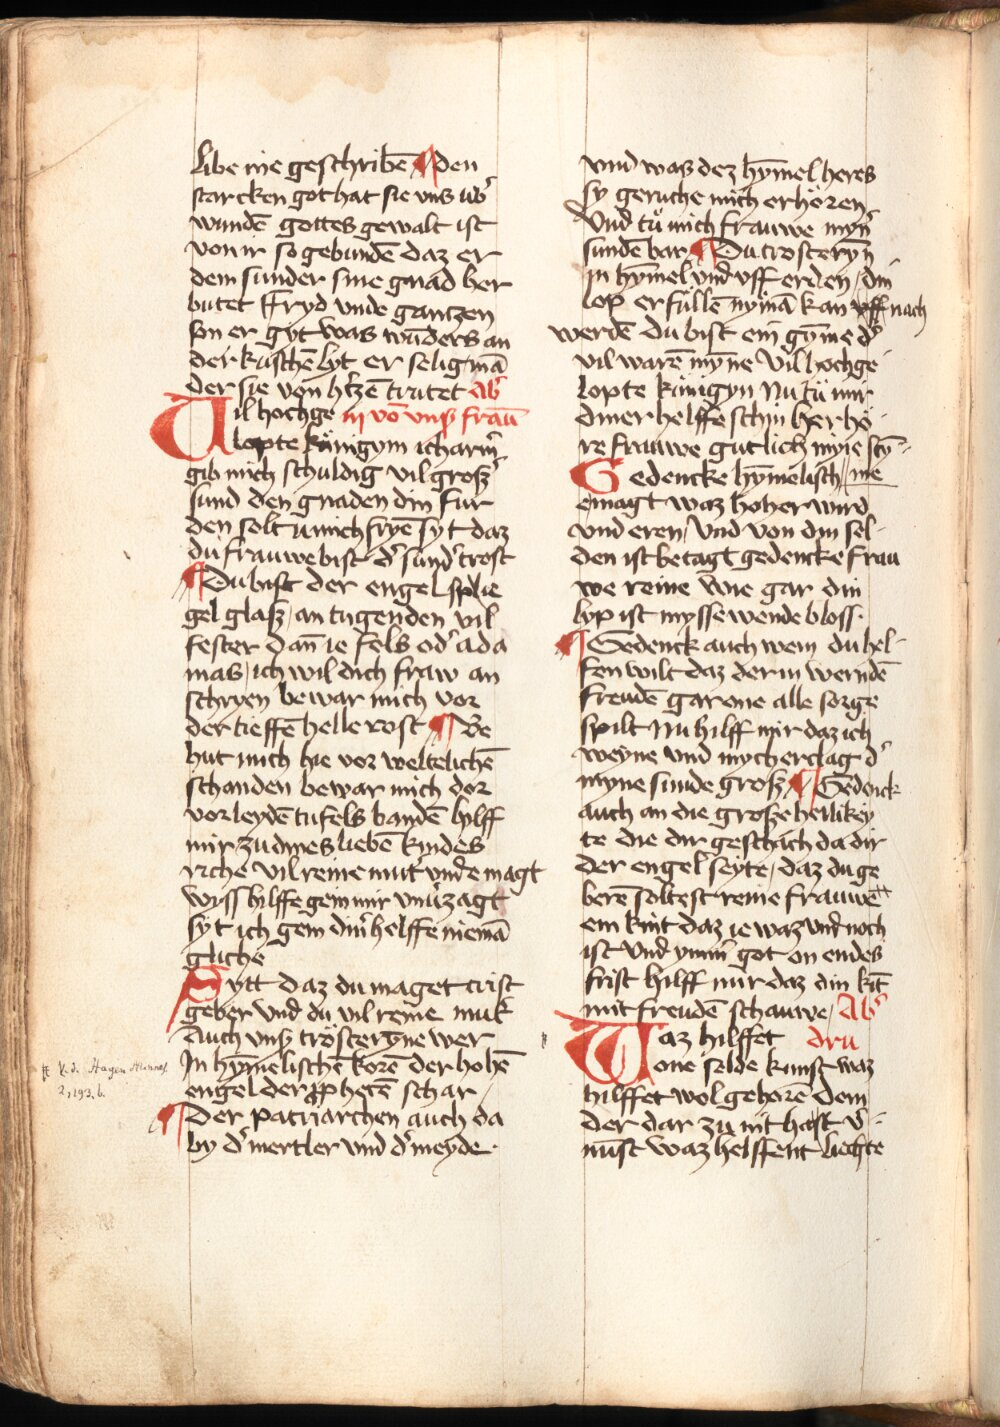 libe nie geschribē ¶ den
starcken got hat sie vns ub᾽
wundē gottes gewalt ist
von ir so gebundē daz er
dem sunder sine gnad her
butet ffryd vnde gantzen
son er gyt was wūders an
der kuschē lyt er selig mā
der sie von h᾽tzē trutet Ab᾽
Vil hochge iij vō vnß fraū
lopte königyin ich arm᾽
gib mich schuldig vil groß᾽
sund den gnaden din fur
den solt u mich fryē syt daz
du frauwe bist d᾽ sund᾽ trost
¶ Du bist der engel spie
gel glaß / an tugenden vil
fester dañ ie fels od᾽ ada
mas / ich wil dich fraw an
schryen bewar mich vor
der tieffē helle rost ¶ Be
hut mich hie vor weltelichē
schanden bewar mich dor
vor leydē tufels bandē hylff
mir zu dines liebē kindes
riche vil reine mut vnd᾽e magt
wyss hilffe gein mir vnūzagt
syt ich gem din᾽ helffe niemā
gliche
Sytt daz du maget crist
geber vnd du vil reine muk
Auch vnß trösteryne wer
In hȳmelischē korē der hohē
engel der ꝓphetē schar /
¶ Der patriarchen auch da
by d᾽ mertler vnd d᾽ meyde ·
V. d. Hagen Minnes.
2, 193, b.
vnd was dez hȳmel heres
sy geruche mich erhören
Vnd tü mich frauwe myn᾽
sundē bar ¶ Du trosteryn
in hȳmel vnd vff erden / din
lop erfüllē nymā kan vff nach
werdē du bist ein gȳme d᾽
vil warē myñe Vil hochge
lopte königyn Nu tü mir
diner helffe schin her hö ·
re frauwe gutlich myne stȳ
Gedencke hȳmelisch / me
emagt waz hoher wird
vnd eren / vnd von din sel ·
den ist betagt gedencke frau
we reine wie gar din
lyp ist myssewende bloss ·
¶ Gedenck auch wem du hel ·
fen wilt daz der in werndē
freudē gar one alle sorge
spilt Nu hilff mir daz ich
weyne vnd mych erclag d᾽
myne sunde groß ¶ Gedenck
auch an die große heilikey
te die dir geschach da dir
der engel seyte / daz du ge
berē soltest reine frauwē
ein kint daz ie waz vnd noch
ist vnd ymm᾽ got on endes
frist hilff mir daz din kīt
mit freudē schauwe / Ab᾽
Waz hilffet dru
one selde kunst waz
hilffet wol gehorē dem
der dar zu nit hast v᾽ ·
nūst waz helffent liechte